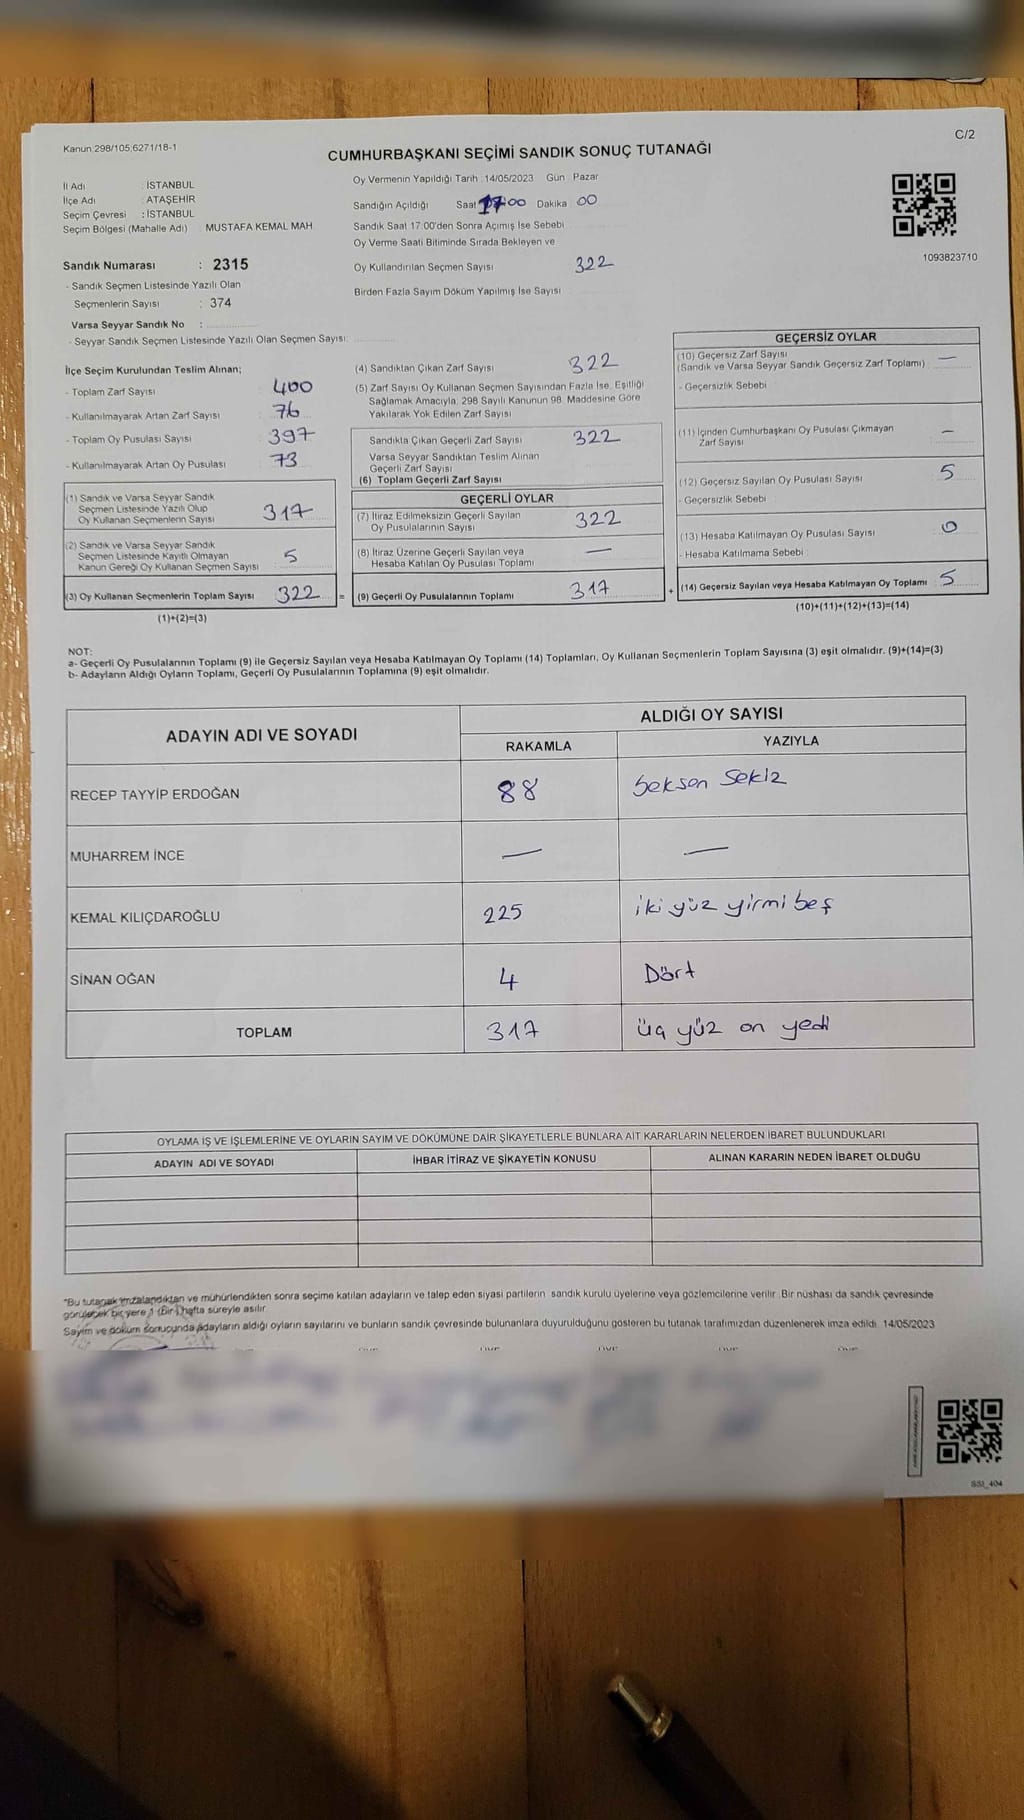 C/2
Kanun 298/105,6271/18-1
CUMHURBAŞKANI SEÇİMİ SANDIK SONUÇ TUTANAĞI
İl Adı : İSTANBUL
İlçe Adı : ATAŞEHİR
Seçim Çevresi : İSTANBUL
Seçim Bölgesi (Mahalle Adı) MUSTAFA KEMAL MAH
Sandık Numarası : 2315
- Sandık Seçmen Listesinde Yazılı Olan
Seçmenlerin Sayısı : 374
Varsa Seyyar Sandık No :
- Seyyar Sandık Seçmen Listesinde Yazılı Olan Seçmen Sayısı:
Oy Vermenin Yapıldığı Tarih 14/05/2023 Gün Pazar
Sandığın Açıldığı Saat 17:00 Dakika 00
Sandık Saat 17:00'den Sonra Açımış İse Sebebi
Oy Verme Saati Bitiminde Sırada Bekleyen ve
Oy Kullandırılan Seçmen Sayısı 322
Birden Fazla Sayım Döküm Yapılmış İse Sayısı
1093823710
İlçe Seçim Kurulundan Teslim Alınan;
- Toplam Zarf Sayısı 400
- Kullanılmayarak Artan Zarf Sayısı 76
- Toplam Oy Pusulası Sayısı 397
- Kullanılmayarak Artan Oy Pusulası 73
(1) Sandık ve Varsa Seyyar Sandık
Seçmen Listesinde Yazılı Olup
Oy Kullanan Seçmenlerin Sayısı 317
(2) Sandık ve Varsa Seyyar Sandık
Seçmen Listesinde Kayıtlı Olmayan
Kanun Gereği Oy Kullanan Seçmen Sayısı 5
(3) Oy Kullanan Seçmenlerin Toplam Sayısı 322 =
(1)+(2)=(3)
(4) Sandıktan Çıkan Zarf Sayısı 322
(5) Zarf Sayısı Oy Kullanan Seçmen Sayısından Fazla İse, Eşitliği
Sağlamak Amacıyla, 298 Sayılı Kanunun 98. Maddesine Göre
Yakılarak Yok Edilen Zarf Sayısı
Sandıkta Çıkan Geçerli Zarf Sayısı 322
Varsa Seyyar Sandıktan Teslim Alınan
Geçerli Zarf Sayısı
(6) Toplam Geçerli Zarf Sayısı
GEÇERLİ OYLAR
(7) İtiraz Edilmeksizin Geçerli Sayılan
Oy Pusulalarının Sayısı 322
(8) İtiraz Üzerine Geçerli Sayılan veya
Hesaba Katılan Oy Pusulası Toplamı —
(9) Geçerli Oy Pusulalarının Toplamı 317 +
GEÇERSİZ OYLAR
(10) Geçersiz Zarf Sayısı —
(Sandık ve Varsa Seyyar Sandık Geçersiz Zarf Toplamı)
- Geçersizlik Sebebi
(11) İçinden Cumhurbaşkanı Oy Pusulası Çıkmayan
Zarf Sayısı —
(12) Geçersiz Sayılan Oy Pusulası Sayısı 5
- Geçersizlik Sebebi
(13) Hesaba Katılmayan Oy Pusulası Sayısı 0
- Hesaba Katılmama Sebebi :
(14) Geçersiz Sayılan veya Hesaba Katılmayan Oy Toplamı 5
(10)+(11)+(12)+(13)=(14)
NOT:
a- Geçerli Oy Pusulalarının Toplamı (9) ile Geçersiz Sayılan veya Hesaba Katılmayan Oy Toplamı (14) Toplamları, Oy Kullanan Seçmenlerin Toplam Sayısına (3) eşit olmalıdır. (9)+(14)=(3)
b- Adayların Aldığı Oyların Toplamı, Geçerli Oy Pusulalarının Toplamına (9) eşit olmalıdır.
ADAYIN ADI VE SOYADI
ALDIĞI OY SAYISI
RAKAMLA YAZIYLA
RECEP TAYYİP ERDOĞAN 88 Seksen Sekiz
MUHARREM İNCE — —
KEMAL KILIÇDAROĞLU 225 iki yüz yirmi beş
SİNAN OĞAN 4 Dört
TOPLAM 317 üç yüz on yedi
OYLAMA İŞ VE İŞLEMLERİNE VE OYLARIN SAYIM VE DÖKÜMÜNE DAİR ŞİKAYETLERLE BUNLARA AİT KARARLARIN NELERDEN İBARET BULUNDUKLARI
ADAYIN ADI VE SOYADI İHBAR İTİRAZ VE ŞİKAYETİN KONUSU ALINAN KARARIN NEDEN İBARET OLDUĞU
"Bu tutanak imzalandıktan ve mühürlendikten sonra seçime katılan adayların ve talep eden siyasi partilerin sandık kurulu üyelerine veya gözlemcilerine verilir. Bir nüshası da sandık çevresinde
görülebilecek bir yere 1 (Bir) hafta süreyle asılır.
Sayım ve döküm sonucunda adayların aldığı oyların sayılarını ve bunların sandık çevresinde bulunanlara duyurulduğunu gösteren bu tutanak tarafımızdan düzenlenerek imza edildi. 14/05/2023
SSI_404